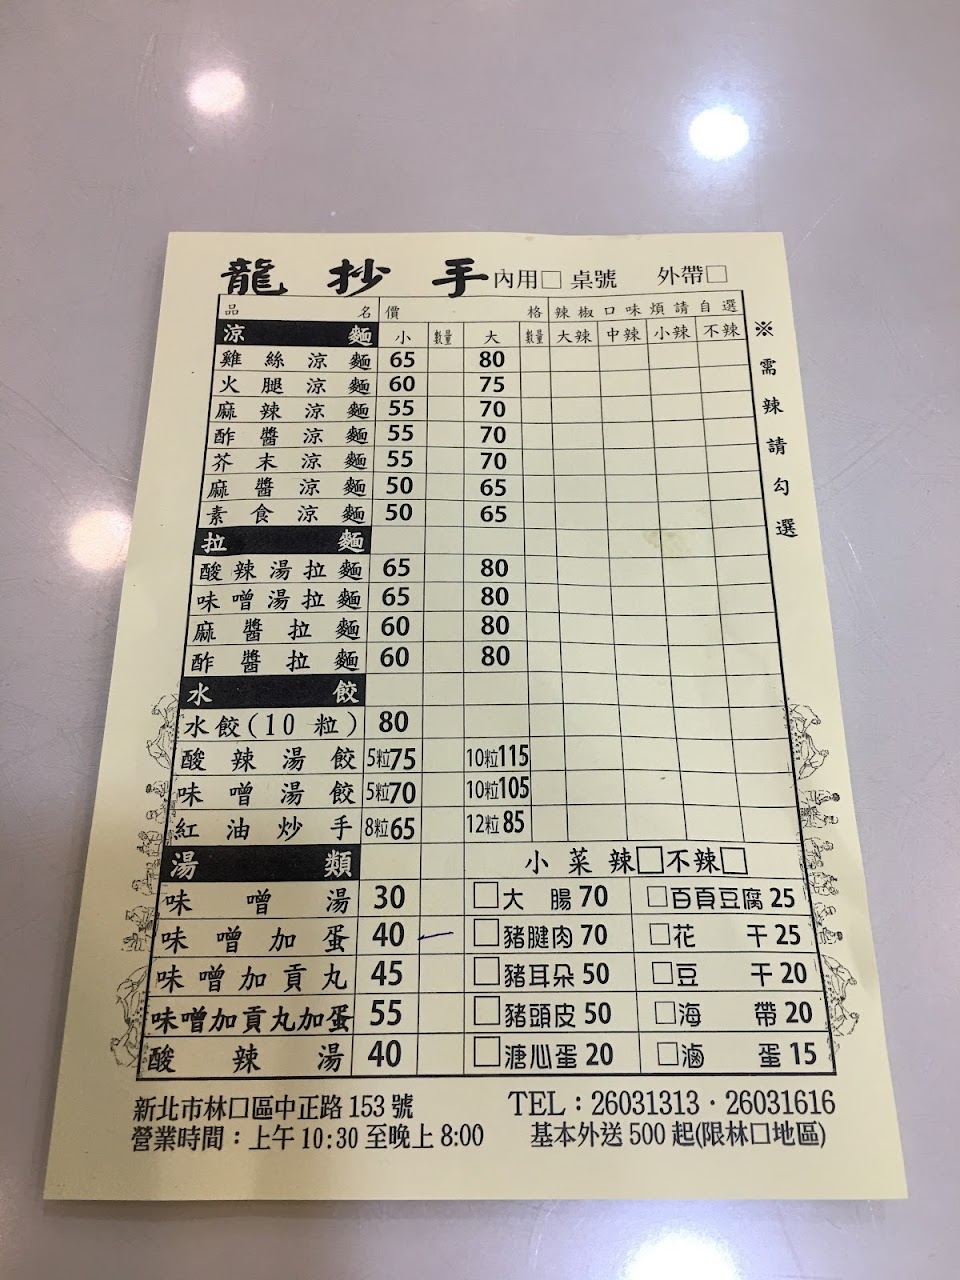 龍抄手 內用□ 桌號 外帶□
品名 價格 辣椒口味煩請自選
涼麵 小 數量 大 數量 大辣 中辣 小辣 不辣
雞絲涼麵 65 80
火腿涼麵 60 75
麻辣涼麵 55 70
酢醬涼麵 55 70
芥末涼麵 55 70
麻醬涼麵 50 65
素食涼麵 50 65
※需辣請勾選
拉麵
酸辣湯拉麵 65 80
味噌湯拉麵 65 80
麻醬拉麵 60 80
酢醬拉麵 60 80
水餃
水餃(10粒) 80
酸辣湯餃 5粒75 10粒115
味噌湯餃 5粒70 10粒105
紅油炒手 8粒65 12粒85
湯類 小菜辣□不辣□
味噌湯 30 □大腸70 □百頁豆腐25
味噌加蛋 40 □豬腱肉70 □花干25
味噌加貢丸 45 □豬耳朵50 □豆干20
味噌加貢丸加蛋 55 □豬頭皮50 □海帶20
酸辣湯 40 □溏心蛋20 □滷蛋15
新北市林口區中正路153號 TEL：26031313·26031616
營業時間：上午10:30至晚上8:00 基本外送500起(限林口地區)